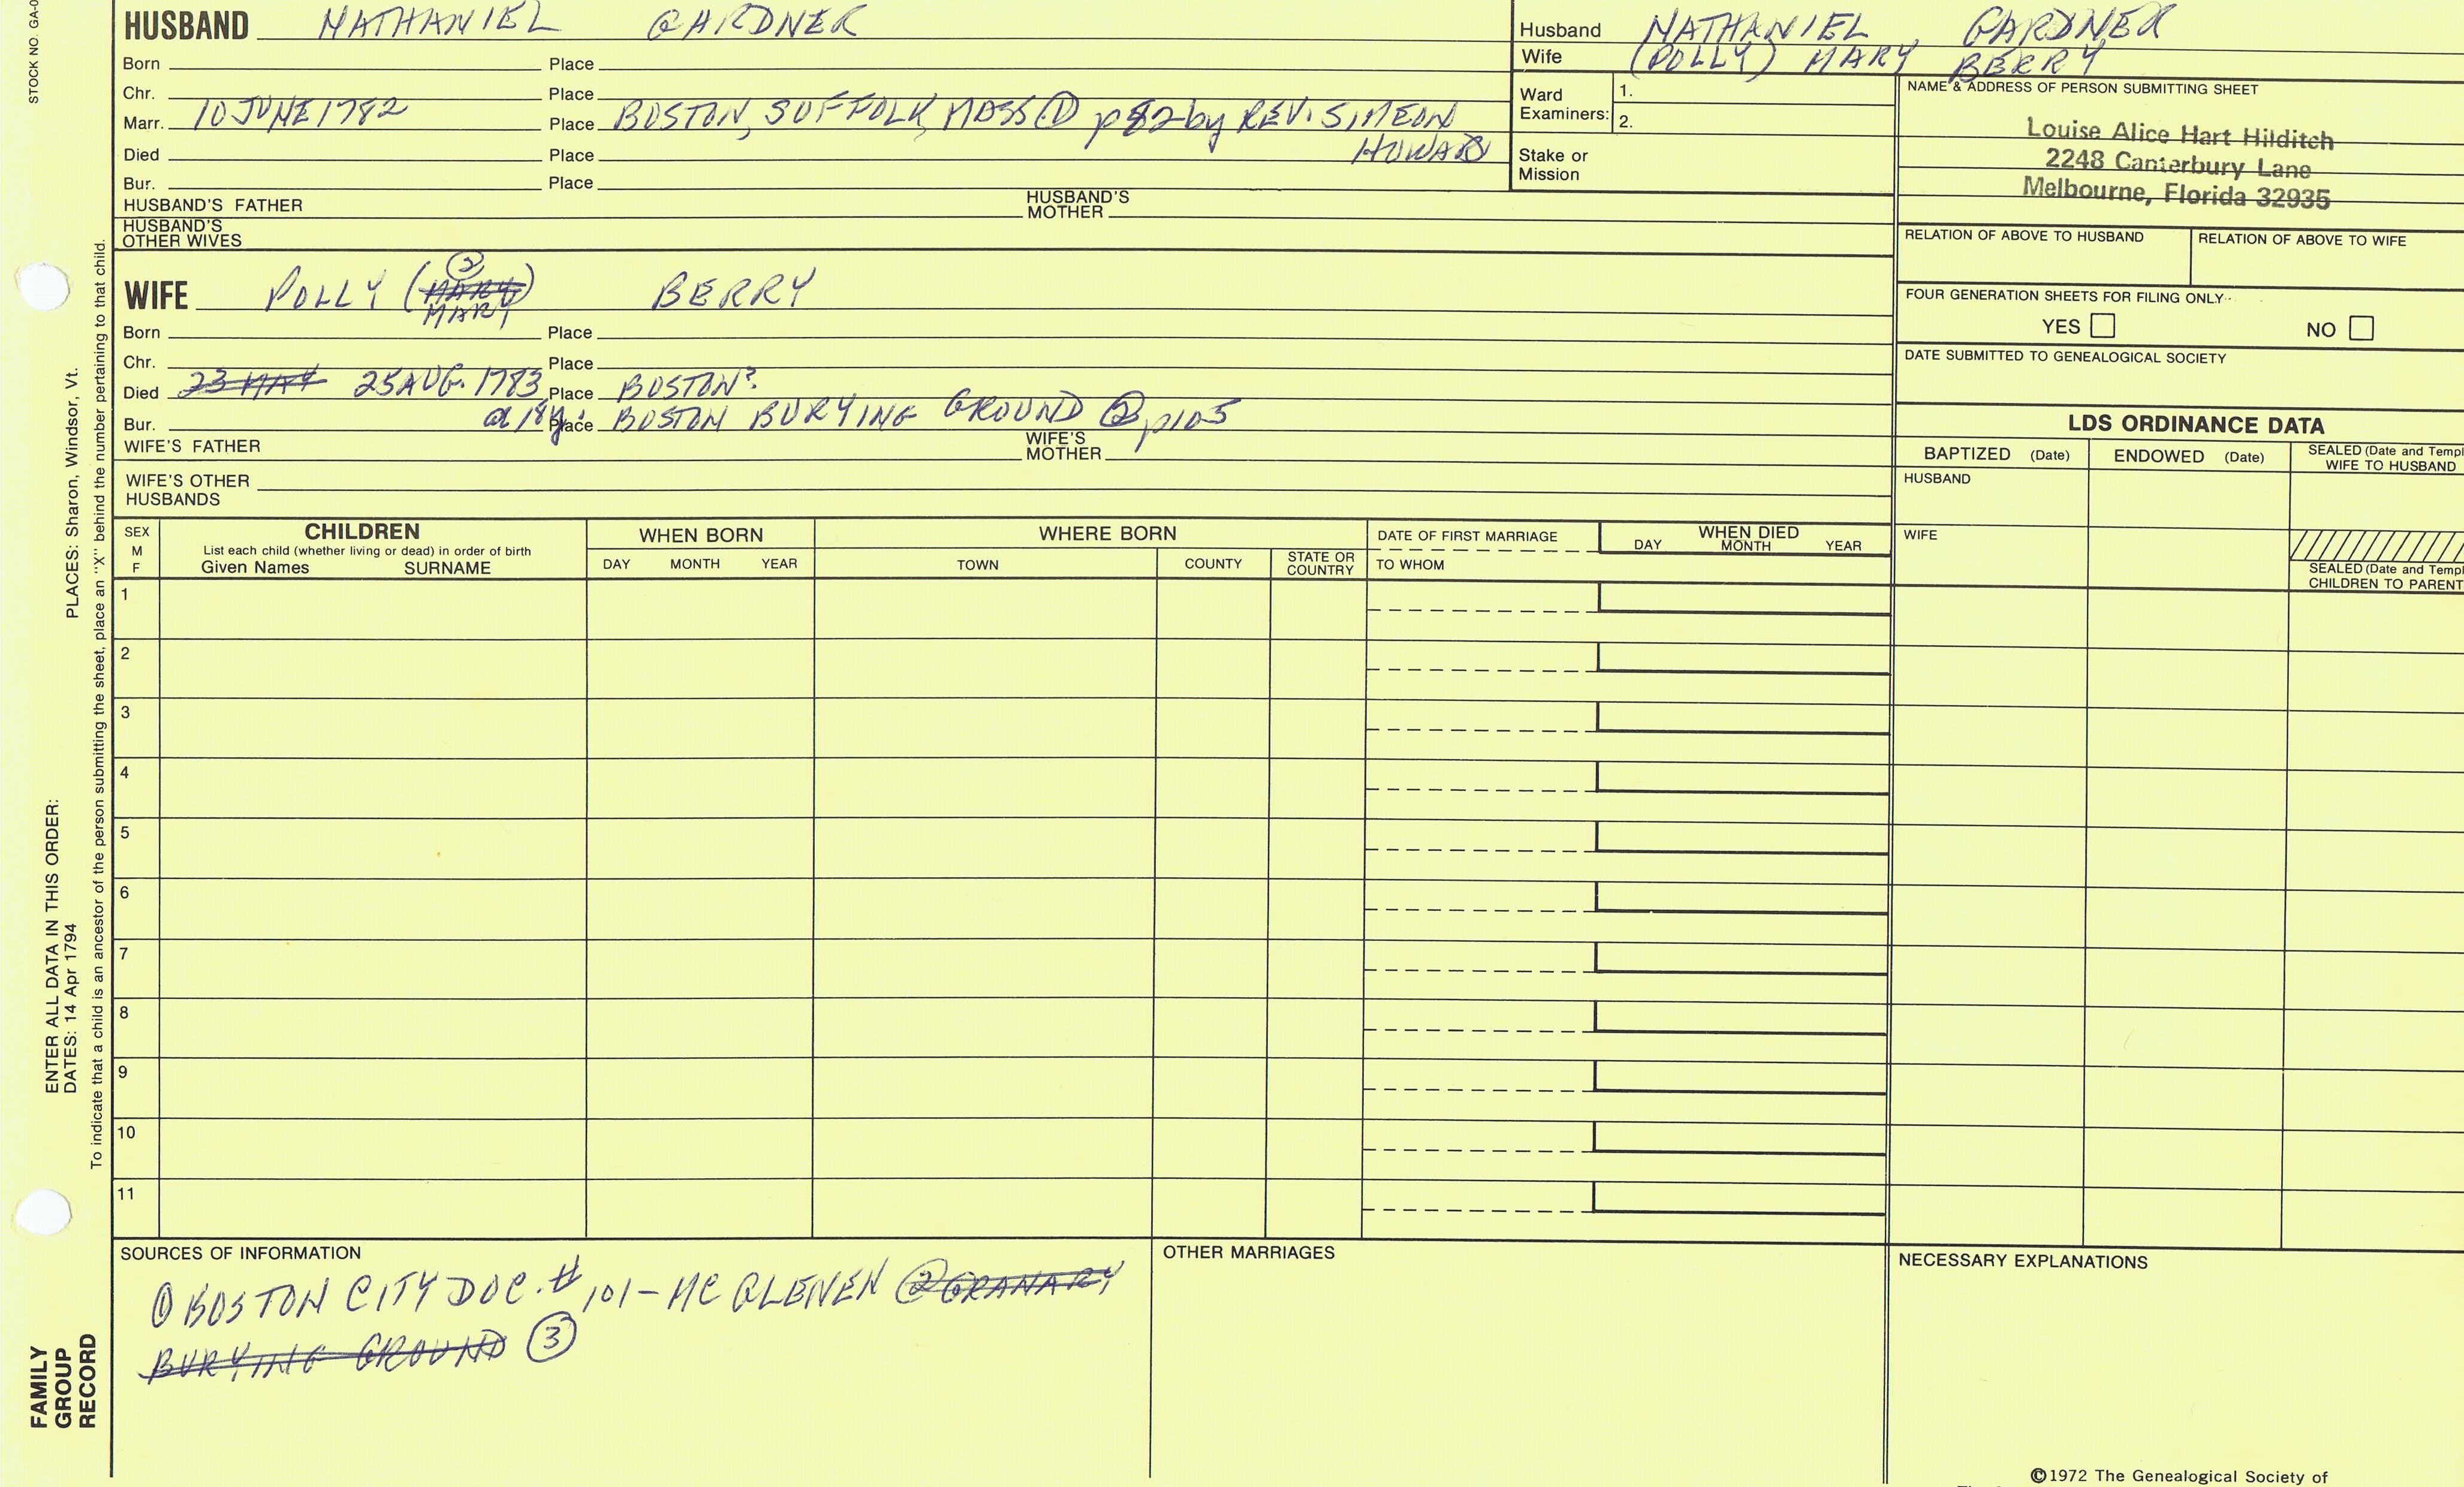 STOCK NO. GA-0
HUSBAND NATHANIEL GARDNER
Born Place
Chr. Place
Marr. 10 JUNE 1782 Place BOSTON, SUFFOLK, MASS ① p 82 by REV. SIMEON
HOWARD
Died Place
Bur. Place
HUSBAND'S FATHER HUSBAND'S MOTHER
HUSBAND'S OTHER WIVES
Husband NATHANIEL GARDNER
Wife (POLLY) MARY BERRY
Ward Examiners: 1.
2.
Stake or Mission
NAME & ADDRESS OF PERSON SUBMITTING SHEET
Louise Alice Hart Hilditch
2248 Canterbury Lane
Melbourne, Florida 32935
RELATION OF ABOVE TO HUSBAND RELATION OF ABOVE TO WIFE
FOUR GENERATION SHEETS FOR FILING ONLY
YES NO
DATE SUBMITTED TO GENEALOGICAL SOCIETY
②
WIFE POLLY (MARY) BERRY
MARY
Born Place
Chr. Place
Died 23 MAY 25 AUG. 1783 Place BOSTON?
Bur. a 18y. Place BOSTON BURYING GROUND ② p105
WIFE'S FATHER WIFE'S MOTHER
WIFE'S OTHER HUSBANDS
LDS ORDINANCE DATA
BAPTIZED (Date) ENDOWED (Date) SEALED (Date and Templ
WIFE TO HUSBAND
HUSBAND
WIFE
SEALED (Date and Templ
CHILDREN TO PARENT
SEX
M
F
CHILDREN
List each child (whether living or dead) in order of birth
Given Names SURNAME
WHEN BORN
DAY MONTH YEAR
WHERE BORN
TOWN COUNTY STATE OR COUNTRY
DATE OF FIRST MARRIAGE
TO WHOM
WHEN DIED
DAY MONTH YEAR
1
2
3
4
5
6
7
8
9
10
11
SOURCES OF INFORMATION
① BOSTON CITY DOC. # 101 - MC GLENEN ② GRANARY
BURYING GROUND ③
OTHER MARRIAGES
NECESSARY EXPLANATIONS
©1972 The Genealogical Society of
PLACES: Sharon, Windsor, Vt.
ENTER ALL DATA IN THIS ORDER:
DATES: 14 Apr 1794
To indicate that a child is an ancestor of the person submitting the sheet, place an "X" behind the number pertaining to that child.
FAMILY
GROUP
RECORD